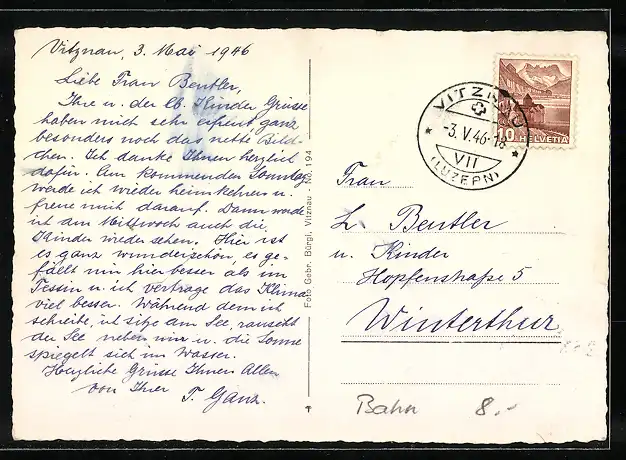 Vitznau, 3. Mai 1946
Liebe Frau Bentler,
Ihre u. der lb. Kinder Grüsse
haben mich sehr erfreut ganz
besonders noch das nette Bild-
chen. Ich danke Ihnen herzlich
dafür. Am kommenden Sonntag
werde ich wieder heimkehren u.
freue mich darauf. Dann werde
ich am Mittwoch auch die
Kinder wieder sehen. Hier ist
es ganz wunderschön, es ge-
fällt mir hier besser als im
Tessin u. ich vertrage das Klima
viel besser. Während dem ich
schreibe, ich sitze am See, rauscht
der See neben mir u. die Sonne
spiegelt sich im Wasser.
Herzliche Grüsse Ihnen Allen
von Ihrer T. Ganz.
Foto Gebr. Börgi, Vitznau - No. 1194
VITZNAU
-3.V.46-18
VII
(LUZERN)
10 HELVETIA
Frau
L. Bentler
u. Kinder
Hopfenstraße 5
Winterthur
Bahn 8.-